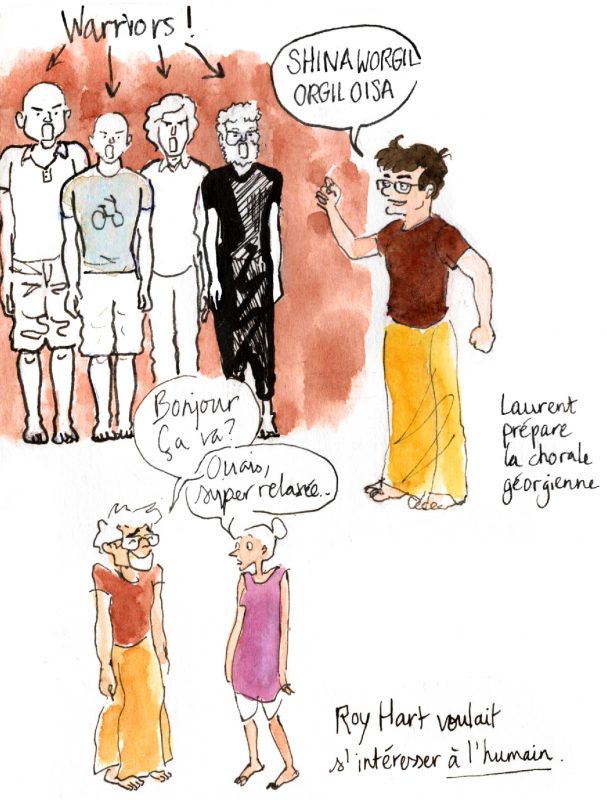 Warriors !
SHINAWORGIL
ORGIL OISA
Laurent
prépare
la chorale
géorgienne
Bonjour
ça va?
Ouais,
super relaxée..
Roy Hart voulait
s'intéresser à l'humain.